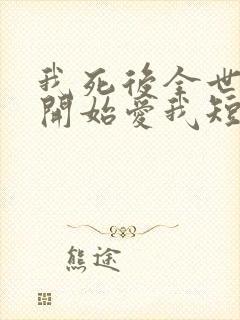 我死後全世
開始愛我短
熊途